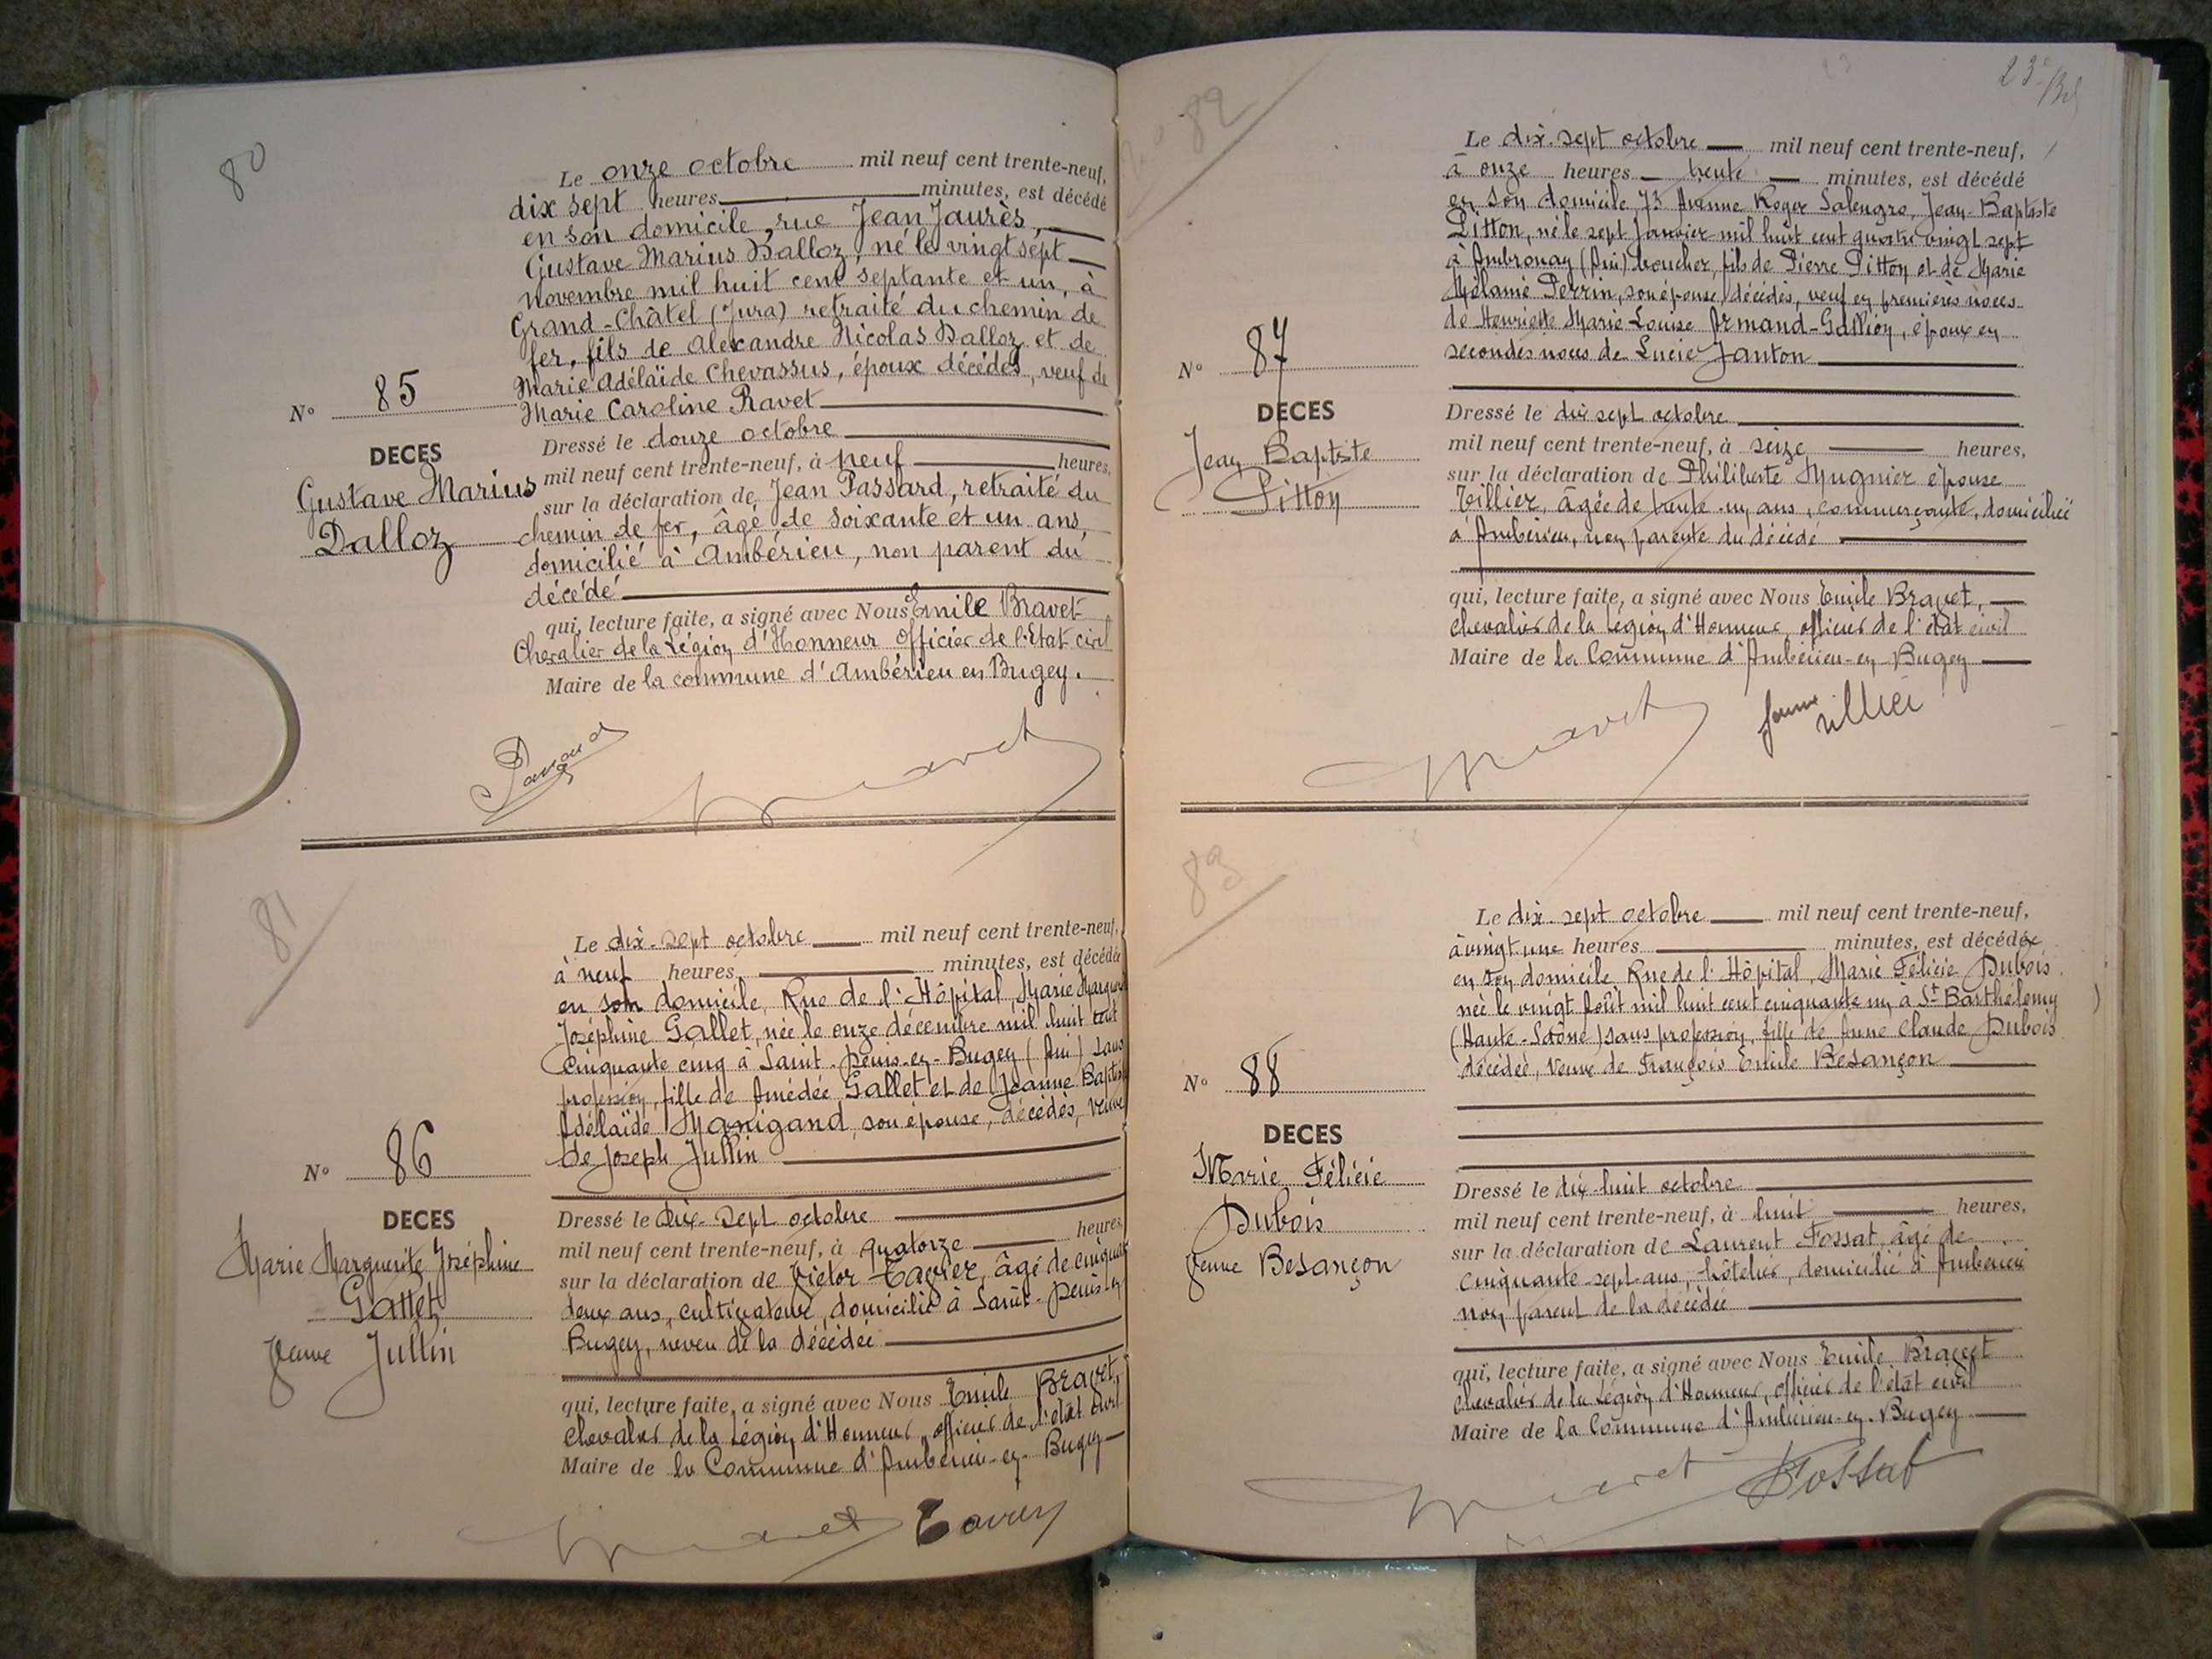 80
Le onze octobre mil neuf cent trente-neuf,
dix sept heures minutes, est décédé
en son domicile, rue Jean Jaurès,
Gustave Marius Dalloz, né le vingt sept
novembre mil huit cent septante et un, à
Grand-Châtel (Jura) retraité du chemin de
fer, fils de Alexandre Nicolas Dalloz et de
Marie Adélaïde Chevassus, époux décédés, veuf de
Marie Caroline Ravet
N° 85
DECES
Gustave Marius
Dalloz
Dressé le douze octobre
mil neuf cent trente-neuf, à neuf heures,
sur la déclaration de Jean Passard, retraité du
chemin de fer, âgé de soixante et un ans,
domicilié à Ambérieu, non parent du
décédé
qui, lecture faite, a signé avec Nous Emile Bravet
Chevalier de la Légion d'Honneur Officier de l'Etat civil
Maire de la commune d'Ambérieu en Bugey.
Passard
Bravet
81
Le dix-sept octobre mil neuf cent trente-neuf,
à neuf heures minutes, est décédée
en son domicile, Rue de l'Hôpital, Marie Marguerite
Joséphine Gallet, née le onze décembre mil huit cent
cinquante cinq à Saint-Denis-en-Bugey (Ain) sans
profession, fille de Amédée Gallet et de Jeanne Baptiste
Adélaïde Manigand, son épouse, décédés, veuve
de Joseph Jullin
N° 86
DECES
Marie Marguerite Joséphine
Gallet
veuve Jullin
Dressé le dix-sept octobre
mil neuf cent trente-neuf, à quatorze heures,
sur la déclaration de Victor Tavier, âgé de cinquante
deux ans, cultivateur, domicilié à Saint-Denis-en
Bugey, neveu de la décédée
qui, lecture faite, a signé avec Nous Emile Bravet,
chevalier de la Légion d'Honneur, officier de l'état civil
Maire de la Commune d'Ambérieu-en-Bugey
Bravet Tavier
23
N° 82
Le dix-sept octobre mil neuf cent trente-neuf,
à onze heures trente minutes, est décédé
en son domicile 73 Avenue Roger Salengro, Jean-Baptiste
Pitton, né le sept Janvier mil huit cent quatre vingt sept
à Ambronay (Ain) boucher, fils de Pierre Pitton et de Marie
Mélanie Perrin, son épouse, décédés, veuf en premières noces
de Henriette Marie Louise Armand-Gallion, époux en
secondes noces de Lucie Janton
N° 87
DECES
Jean Baptiste
Pitton
Dressé le dix sept octobre
mil neuf cent trente-neuf, à seize heures,
sur la déclaration de Philiberte Mugnier épouse
Tillier, âgée de trente-un ans, commerçante, domiciliée
à Ambérieu, non parente du décédé
qui, lecture faite, a signé avec Nous Emile Bravet,
chevalier de la Légion d'Honneur, officier de l'état civil
Maire de la Commune d'Ambérieu-en-Bugey
Bravet femme Tillier
83
Le dix-sept octobre mil neuf cent trente-neuf,
à vingt une heures minutes, est décédée
en son domicile Rue de l'Hôpital, Marie Félicie Dubois
née le vingt Août mil huit cent cinquante un à St Barthélemy
(Haute-Saône) sans profession, fille de Anne Claude Dubois
décédée, Veuve de François Emile Besançon
N° 88
DECES
Marie Félicie
Dubois
Veuve Besançon
Dressé le dix-huit octobre
mil neuf cent trente-neuf, à huit heures,
sur la déclaration de Laurent Fossat, âgé de
cinquante-sept ans, hôtelier, domicilié à Ambérieu
non parent de la décédée
qui, lecture faite, a signé avec Nous Emile Bravet
chevalier de la Légion d'Honneur, officier de l'état civil
Maire de la Commune d'Ambérieu-en-Bugey
Bravet Fossat